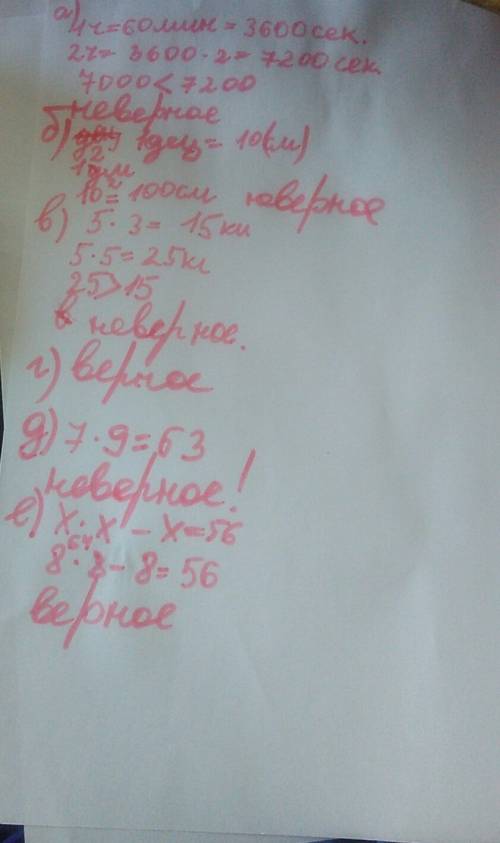 а)
1ч=60мин = 3600сек.
2ч= 3600·2= 7200сек
7000<7200
неверное
б) 1дец = 10(м)
10²= 100см неверное
в) 5·3= 15кг
5·5=25кг
25>15
неверное.
г) верное
д) 7·9=63
неверное!
е) х·х – х=56
64
8·8– 8= 56
верное